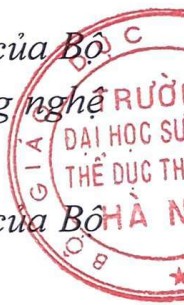 của Bộ
g nghệ
của Bộ
BỘ GIÁO DỤC
TRƯỜ
ĐẠI HỌC SƯ
THỂ DỤC TH
HÀ N